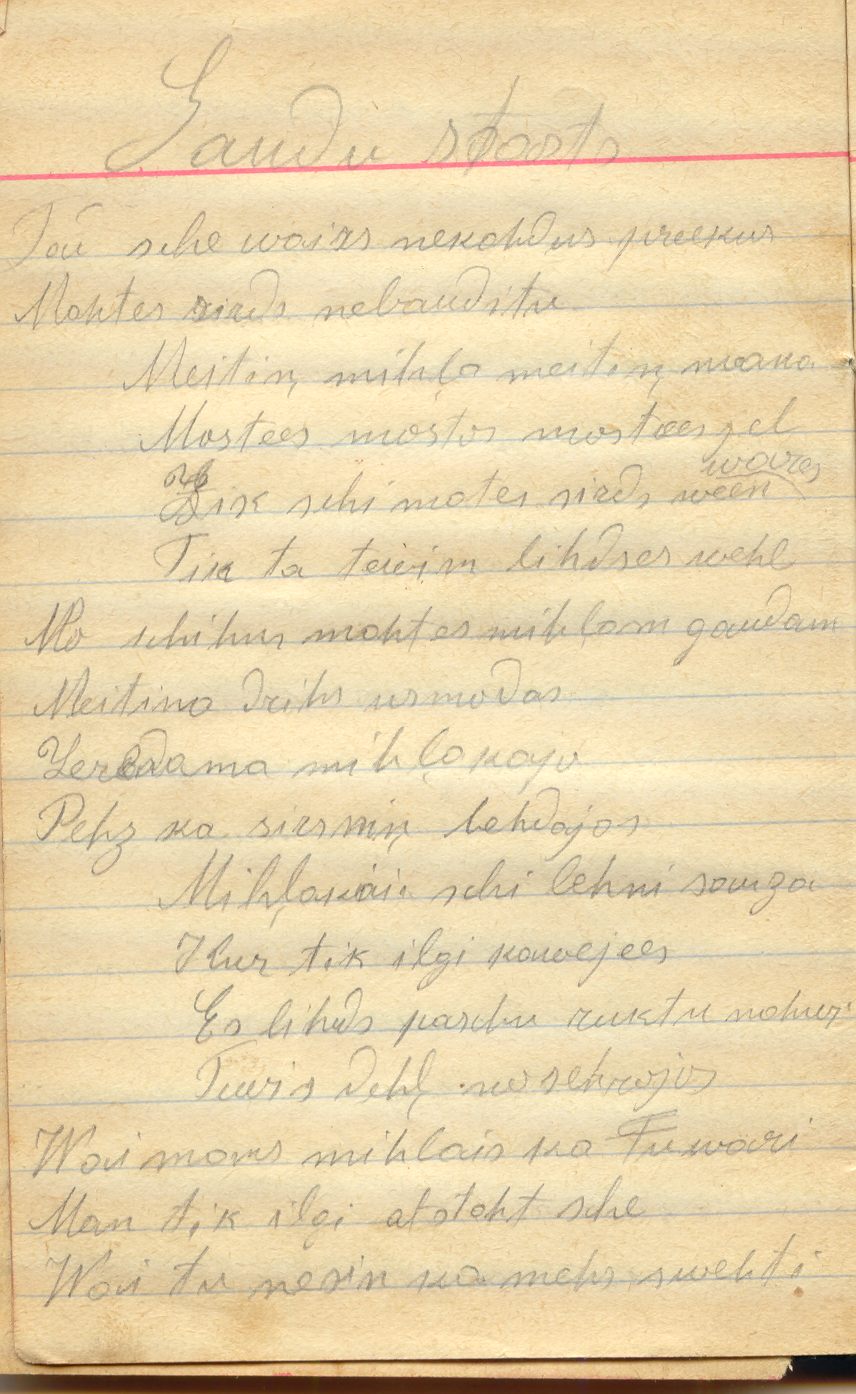 Gaudu stasts
Tai sche wairs nekahdus preekus
Mahtes sirds nebauditu
Meitiņ, mihļa meitiņ, naka
Mostees mostos mostees, el
wares
Tik schi mates sirds ween
Tik ta tewim lihdses wehl
No schihm mahtes mihļam gaudam
Meitina drihs usmodas
Zeredama mihļakajo
Pehz ka sirsniņ behdajas
Mihļakais schi lehni sauza
Kur tik ilgi kawejees
Es lihds paschu ruktu nahwei
Tewis dehļ nosehrojos
Wai mans mihlais ka Tu wari
Man tik ilgi atstaht sche
Wai tu nesin ka mehs swehti